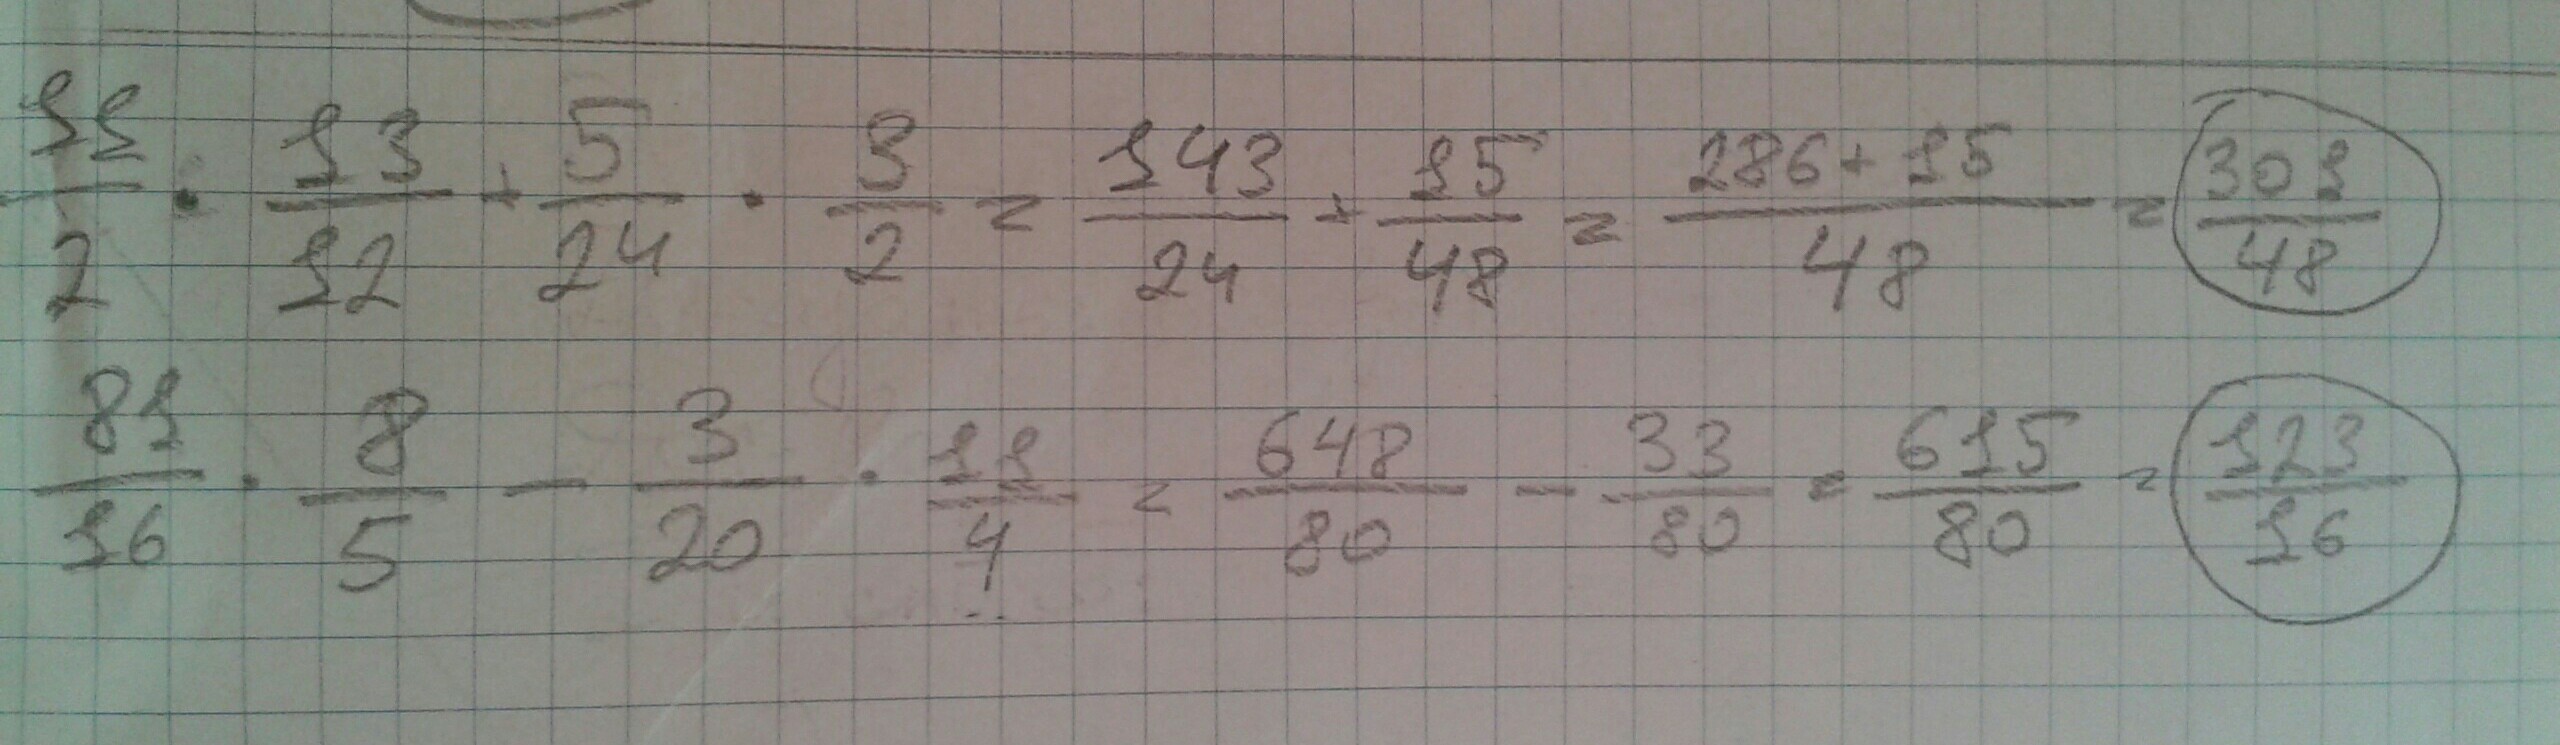 11/2 · 13/12 + 5/24 · 3/2 = 143/24 + 15/48 = (286+15)/48 = 301/48
81/16 · 8/5 - 3/20 · 11/4 = 648/80 - 33/80 = 615/80 = 123/16